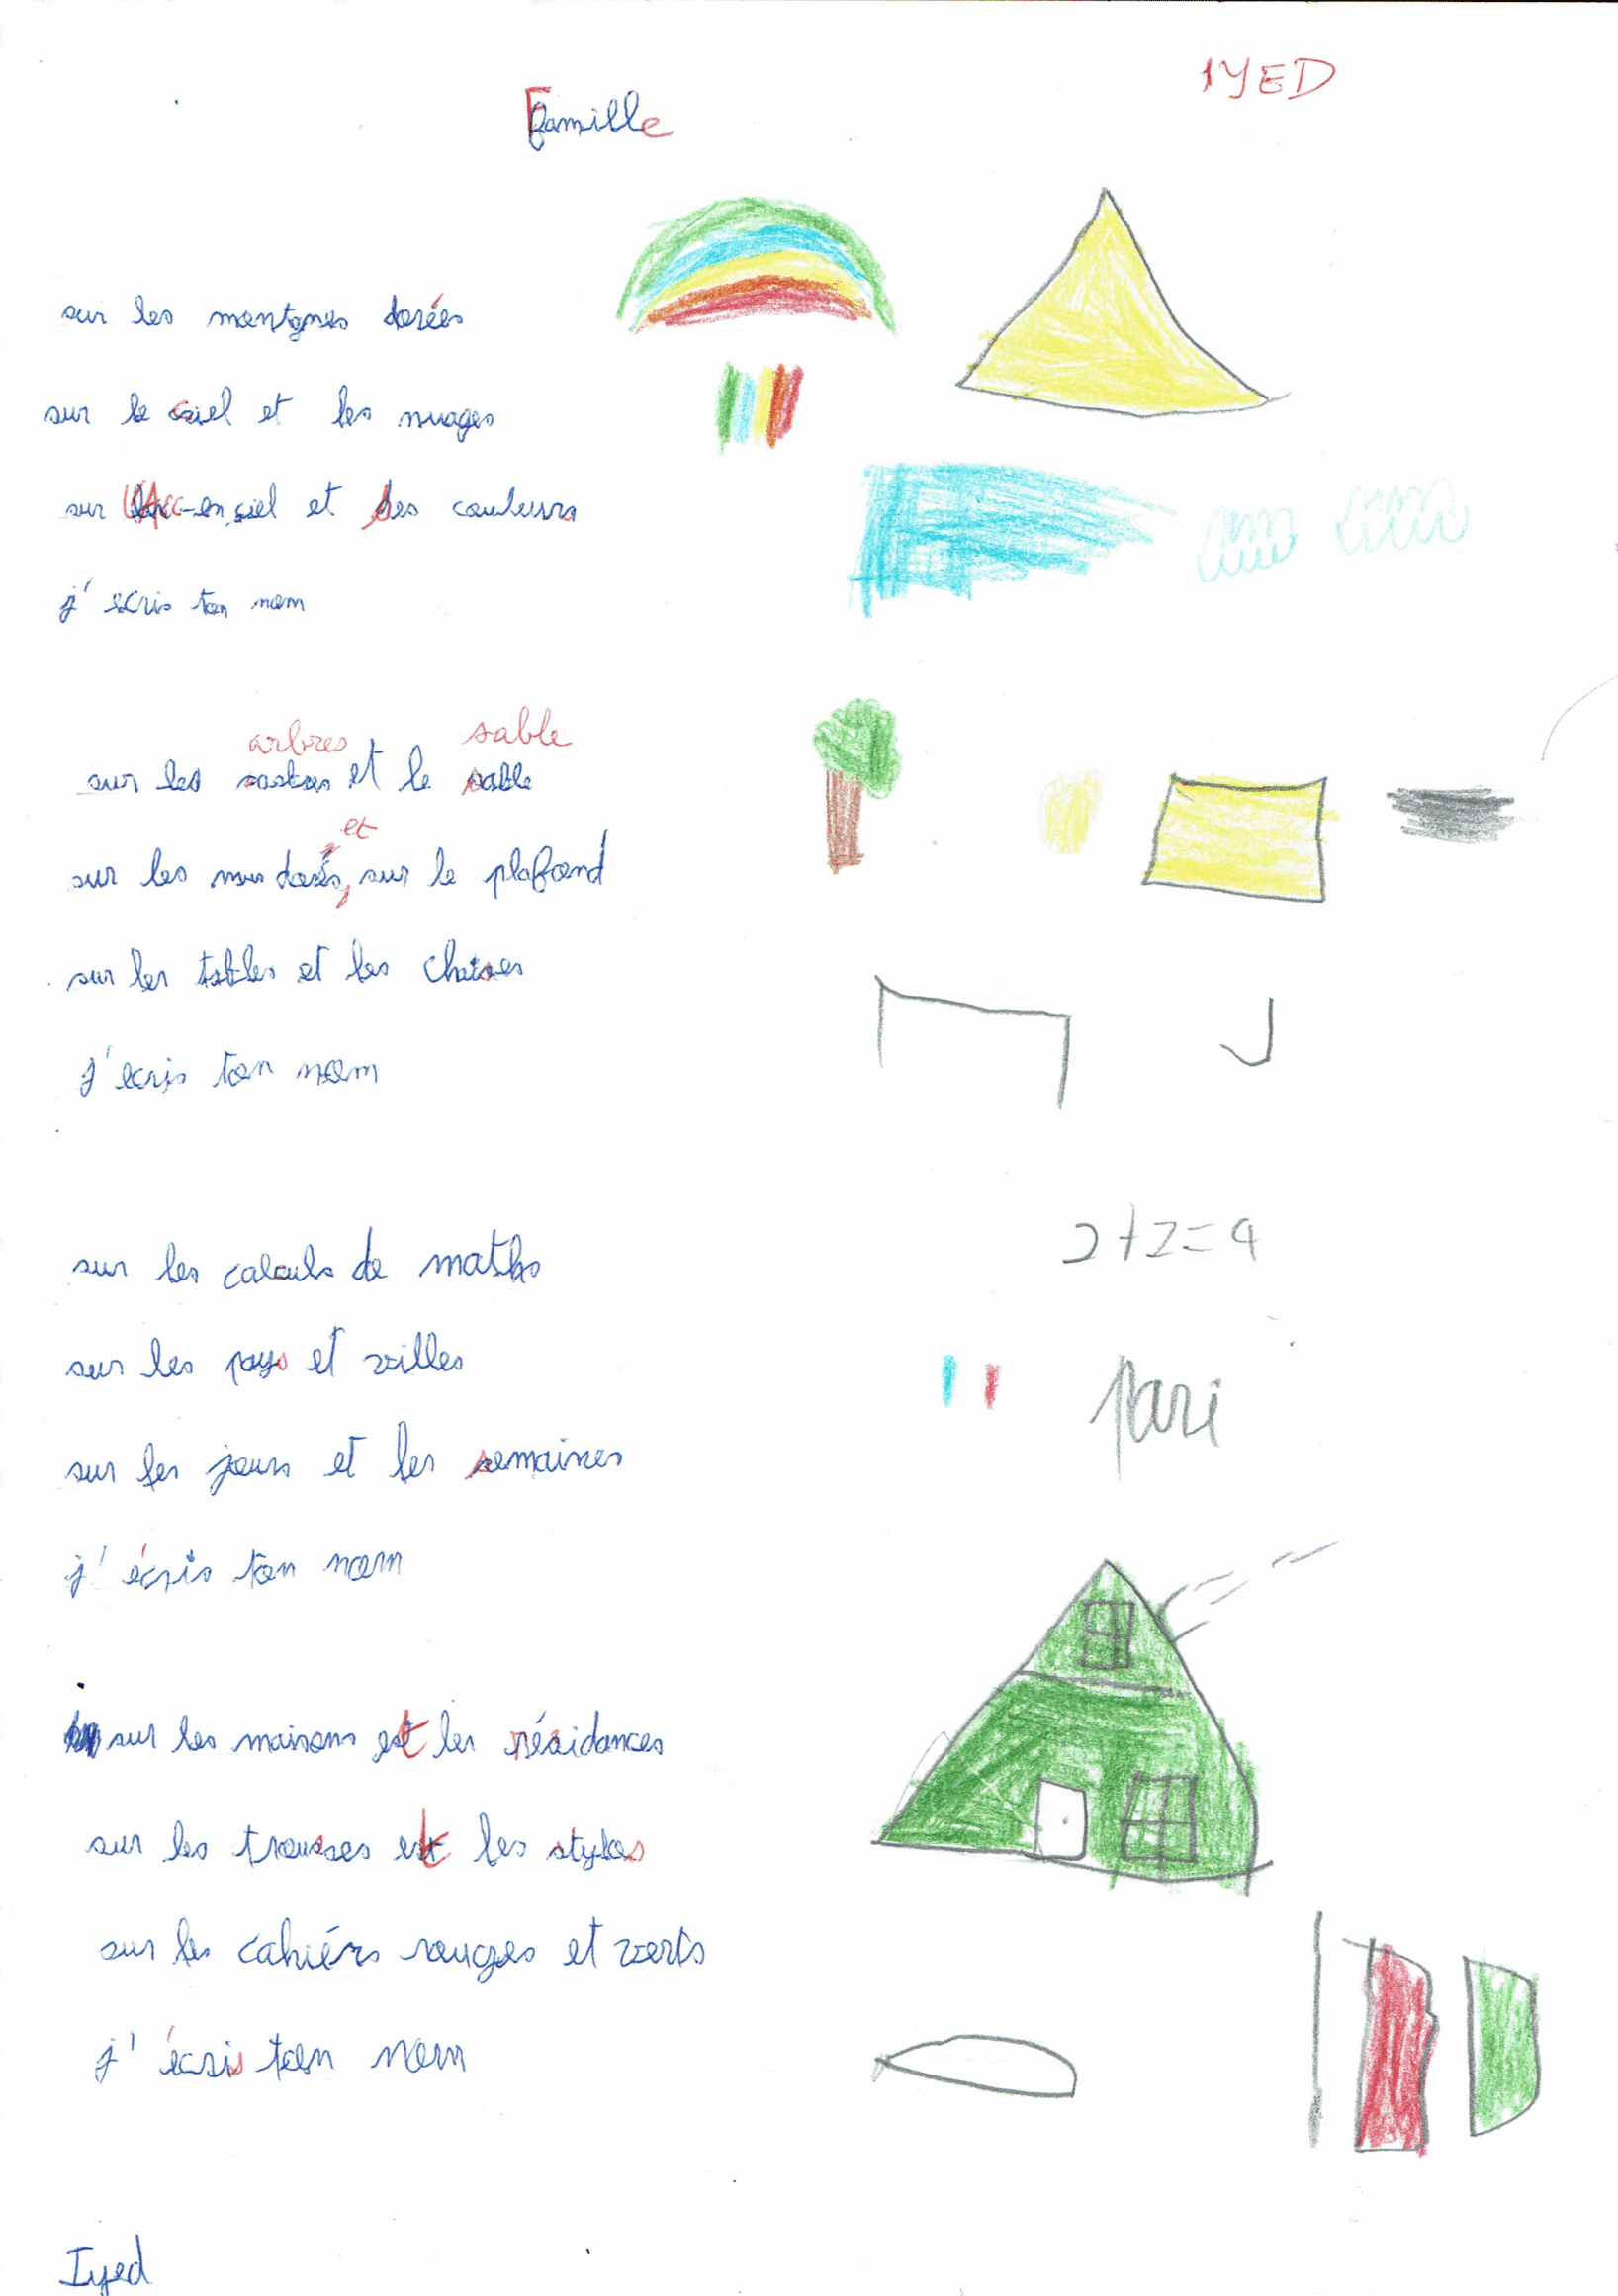 IYED
Famille
sur les montgnes dorées
sur le ciel et les nuages
sur l'Arc-en ciel et des couleurs
j' écris ton nom
arbres sable
sur les et le sable
et
sur les murs dorés, sur le plafond
sur les tables et les chaises
j'ecris ton nom
sur les calculs de maths
2+2=4
sur les pays et villes
pari
sur les jours et les semaines
j' écris ton nom
sur les maisons et les résidances
sur les trousses et les stylos
sur les cahiérs rouges et verts
j' écris ton nom
Iyed